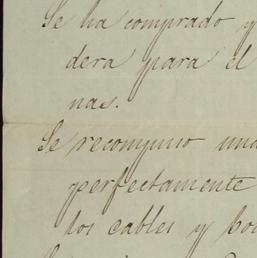 Se ha comprado y
dera para el
nas.
Se recompuso una
perfectamente
los cables y